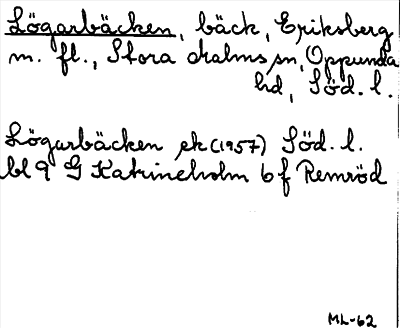 Lögarbäcken, bäck, Eriksberg
m. fl., Stora Malms sn, Oppunda
hd, Söd. l.
Lögarbäcken ek (1957) Söd. l.
bl 9 G Katrineholm 6 f Remröd
ML-62